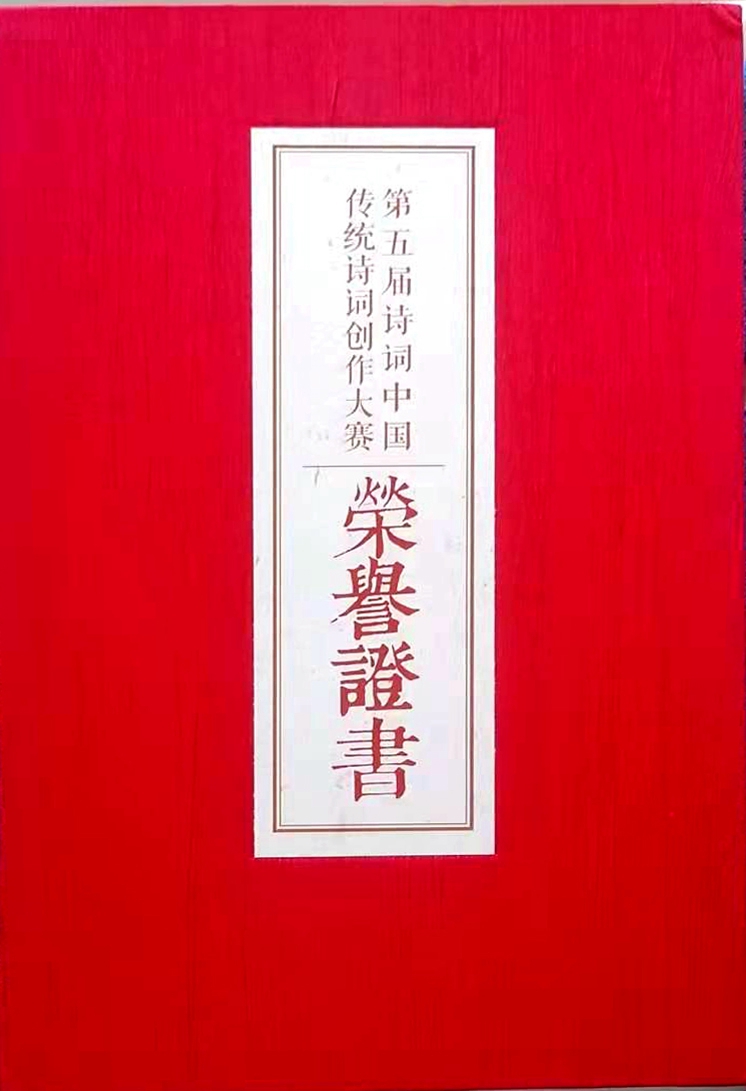 第五届诗词中国
传统诗词创作大赛
榮譽證書